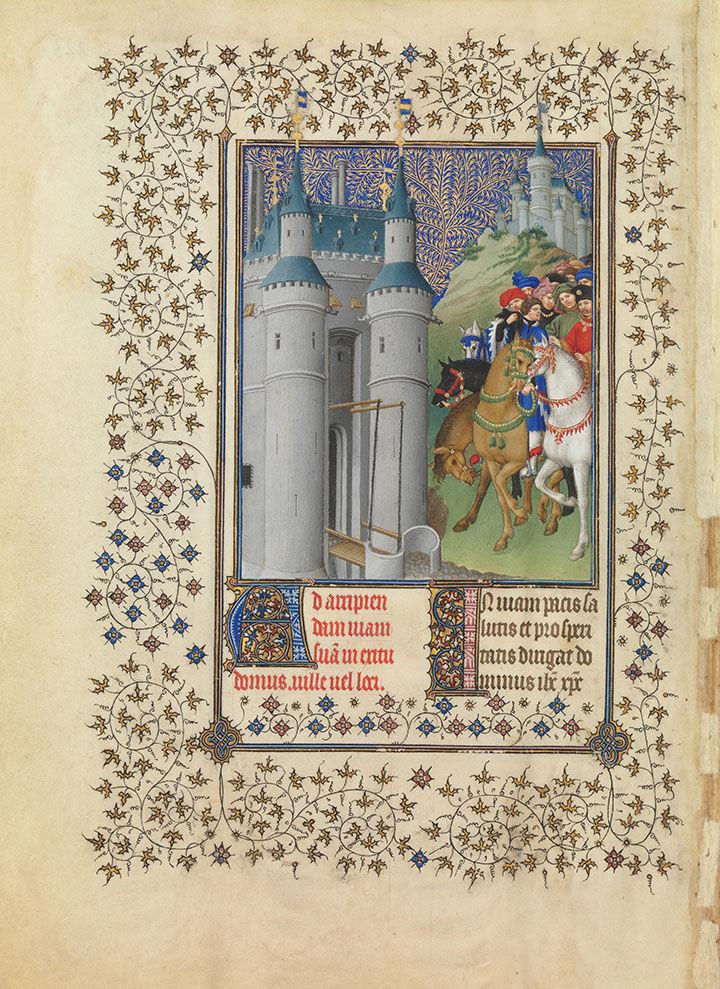 Ad accipien
dam uiam
suā in exitu
domus. uille uel loci.
In uiam pacis sa
lutis et prosperi
tatis dirigat do
minus ihc̄ xp̄c